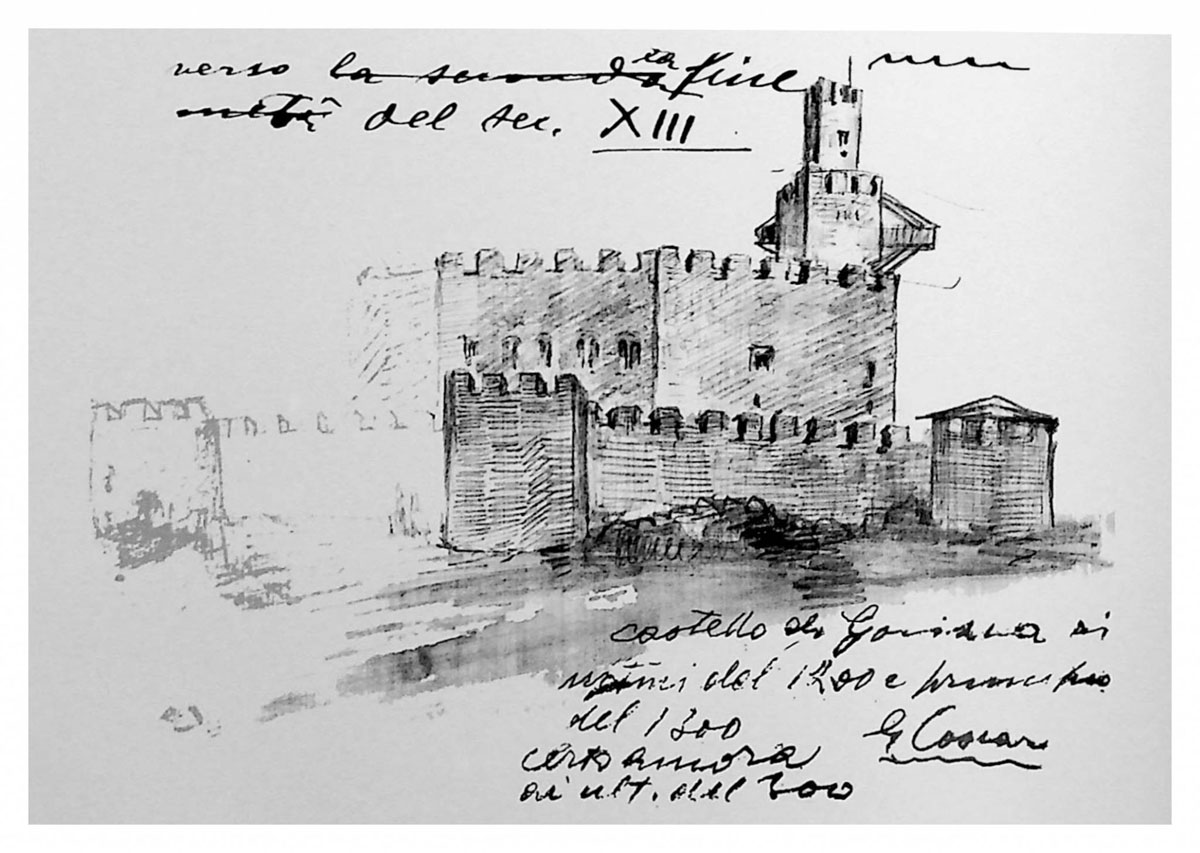 verso la seconda fine
metà del sec. XIII
castello di ai
del 1200 e principio
del 1300
G Cossar
certo ancora
ai ult. del 300